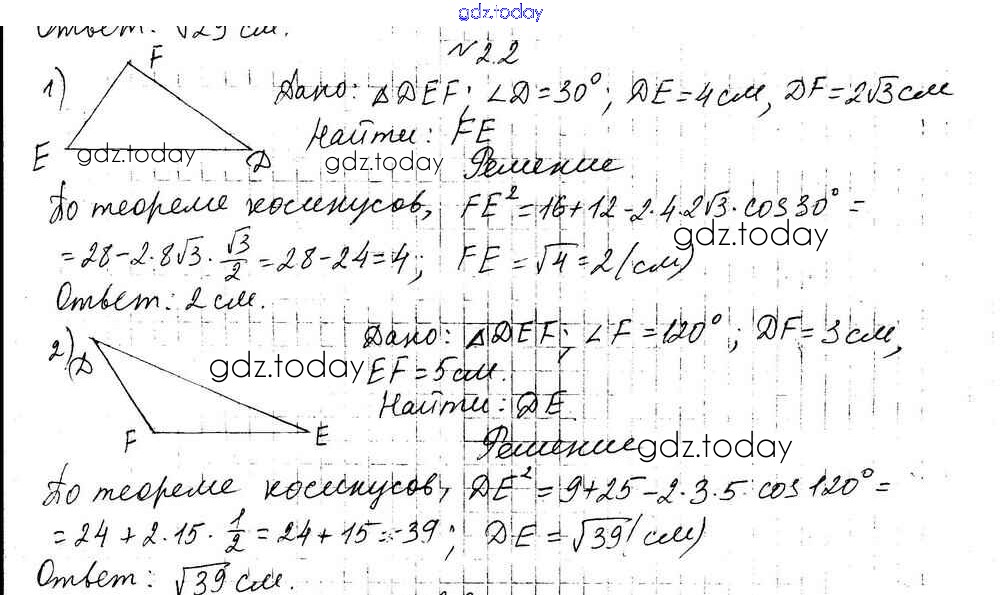 gdz.today
Ответ: √29 см.
№2.2
1) F
Дано: △DEF; ∠D = 30°; DE = 4 см, DF = 2√3 см
Найти: FE
E gdz.today D gdz.today Решение
По теореме косинусов, FE² = 16 + 12 - 2·4·2√3·cos 30° =
gdz.today
= 28 - 2·8√3·√3/2 = 28 - 24 = 4; FE = √4 = 2 (см)
Ответ: 2 см.
2) D Дано: △DEF; ∠F = 120°; DF = 3 см,
gdz.today EF = 5 см.
Найти: DE
F E
Решение gdz.today
По теореме косинусов, DE² = 9 + 25 - 2·3·5·cos 120° =
= 24 + 2·15·1/2 = 24 + 15 = 39; DE = √39 (см)
Ответ: √39 см.